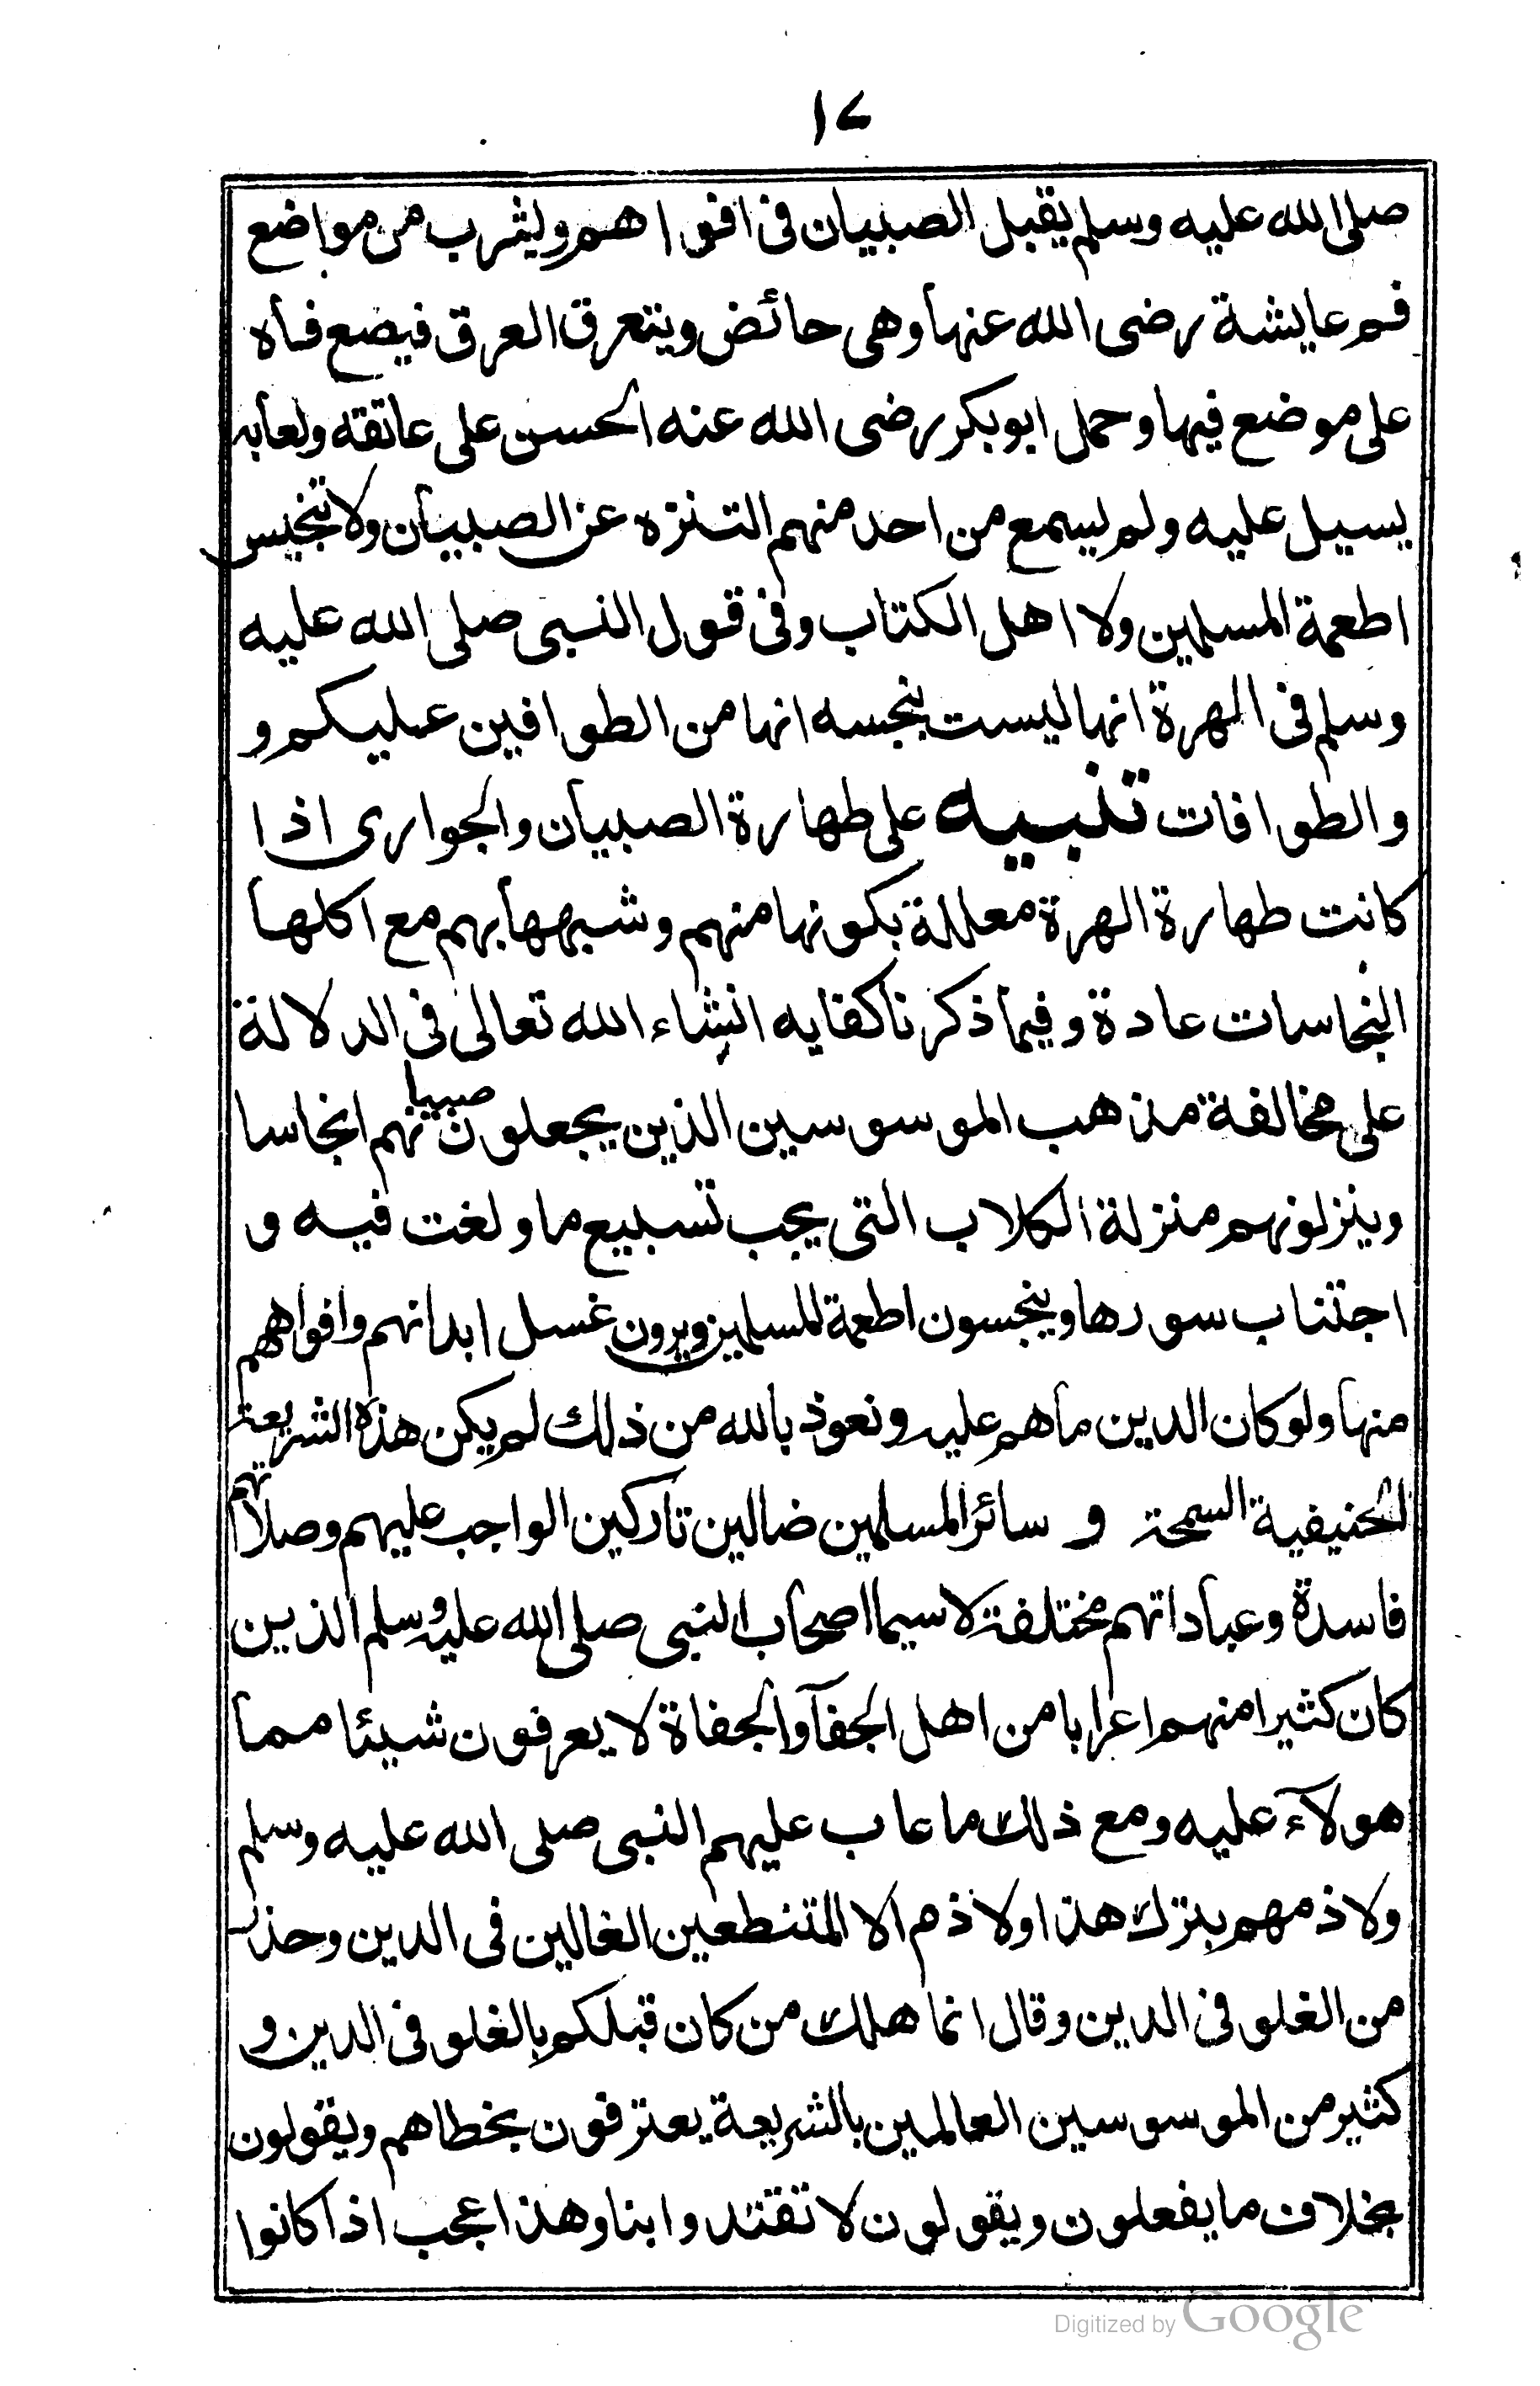 ١٧
صلى الله عليه وسلم يقبل الصبيان فى افواههم ويشرب من مواضع
فم عايشة رضى الله عنها وهى حائض ويتعرق العرق فيضع فاه
على موضع فيها وحمل ابوبكر رضى الله عنه الحسن على عاتقه ولعابه
يسيل عليه ولم يسمع من احد منهم التنزه عن الصبيان ولا تنجيس
اطعمة المسلمين ولا اهل الكتاب وفى قول النبى صلى الله عليه
وسلم فى الهرة انها ليست بنجسه انها من الطوافين عليكم و
والطوافات تنبيه على طهارة الصبيان والجوارى اذا
كانت طهارة الهرة معللة بكونها منهم وشبهها بهم مع اكلها
النجاسات عادة وفيما ذكرنا كفايه انشاء الله تعالى فى الدلالة
على مخالفة مذهب الموسوسين الذين يجعلون صبيانهم انجاسا
وينزلونهم منزلة الكلاب التى يجب تسبيع ما ولغت فيه و
اجتناب سورها وينجسون اطعمة المسلمين ويرون غسل ابدانهم وافواههم
منها ولو كان الدين ما هم عليه ونعوذ بالله من ذلك لم يكن هذه الشريعة
الحنيفية السمحة و سائر المسلمين ضالين تاركين الواجب عليهم وصلاتهم
فاسدة وعباداتهم مختلفة لاسيما اصحاب النبى صلى الله عليه وسلم الذين
كان كثيرا منهم اعرابا من اهل الجفآ والجفاة لا يعرفون شيئا مما
هولآء عليه ومع ذلك ما عاب عليهم النبى صلى الله عليه وسلم
ولا ذمهم بترك هذا ولا ذم الا المتنطعين الغالين فى الدين وحذر
من الغلو فى الدين وقال انما هلك من كان قبلكم بالغلو فى الدين و
كثير من الموسوسين العالمين بالشريعة يعترفون بخطاهم ويقولون
بخلاف ما يفعلون ويقولون لا تقتدوا بنا وهذا عجب اذا كانوا
Digitized by Google